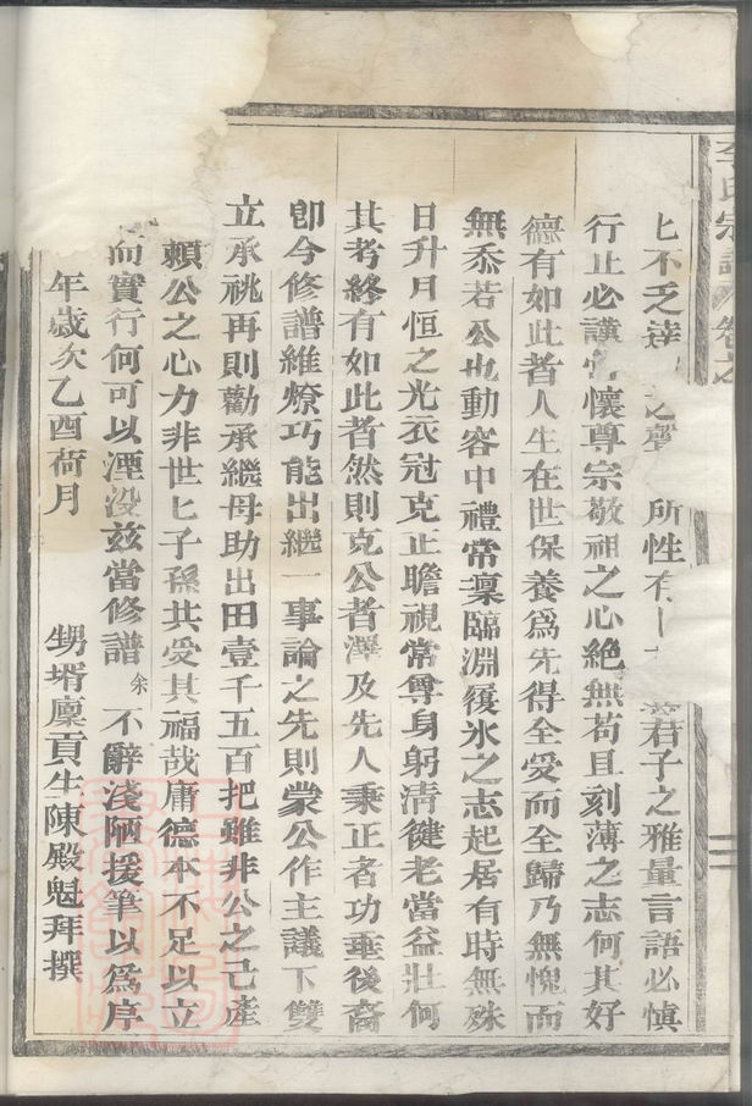 李氏宗譜 卷之
匕不乏達 之聲 所性有 君子之雅量言語必慎
行止必謹常懷尊宗敬祖之心絶無苟且刻薄之志何其好
德有如此者人生在世保養爲先得全受而全歸乃無愧而
無忝若公也動容中禮常凜臨淵履氷之志起居有時無殊
日升月恒之光衣冠克正瞻視常尊身躬清健老當益壯何
其考終有如此者然則克公者澤及先人秉正者功垂後裔
即今修譜維燎巧能出繼一事論之先則蒙公作主議下雙
立承祧再則勸承繼母助出田壹千五百把雖非公之己產
賴公之心力非世匕子孫共受其福哉庸德本不足以立
而實行何可以湮没兹當修譜余不辭淺陋援筆以爲序
年歲次乙酉荷月 甥壻廩貢生陳殿魁拜撰